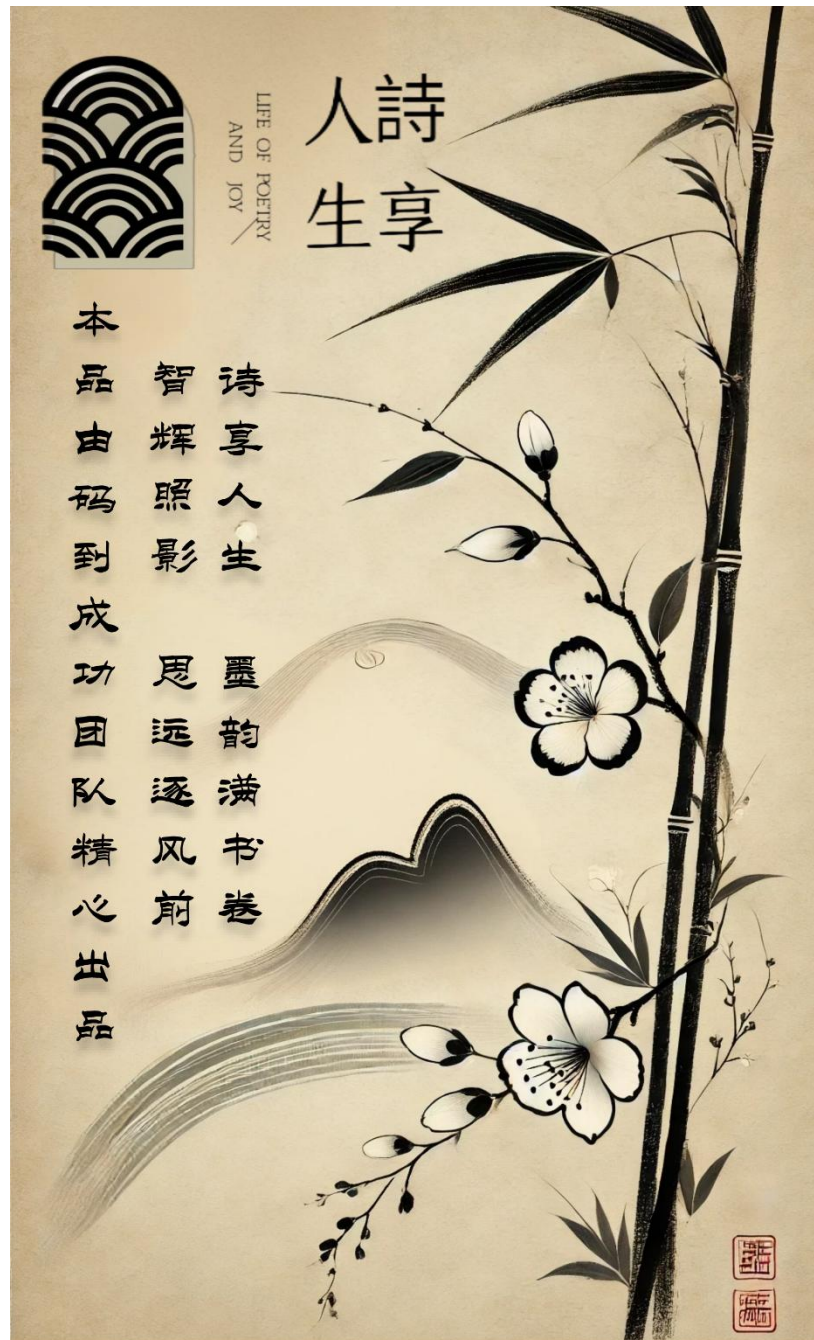 詩享
人生
LIFE OF POETRY
AND JOY
诗享人生 墨韵满书卷
智辉照影 思远逐风前
本品由码到成功团队精心出品